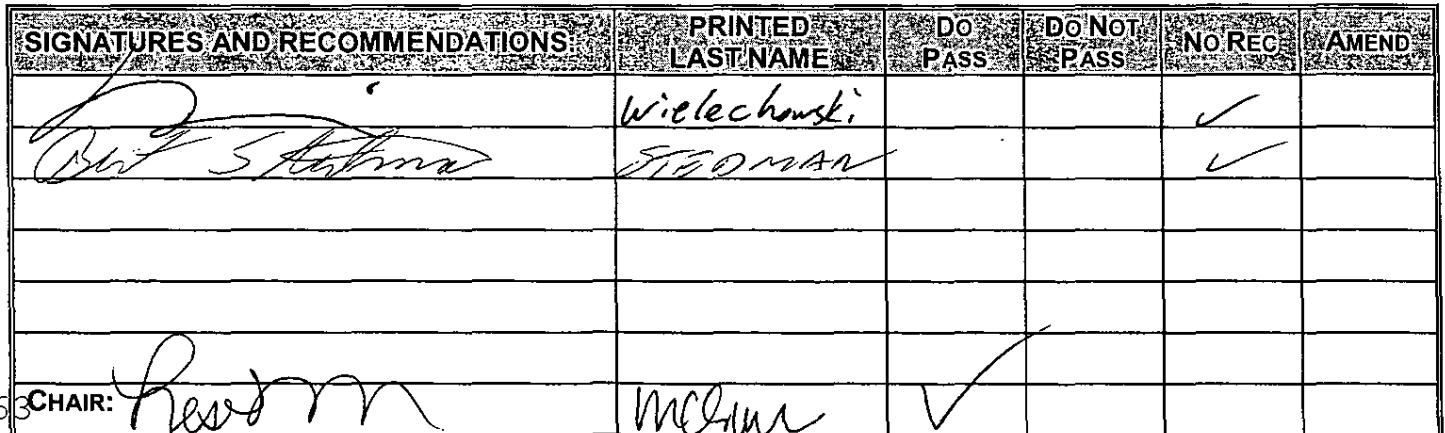 SIGNATURES AND RECOMMENDATIONS: PRINTED LAST NAME DO PASS DO NOT PASS NO REC AMEND
Wielechowski ✓
Bert Stedman STEDMAN ✓
CHAIR: ✓